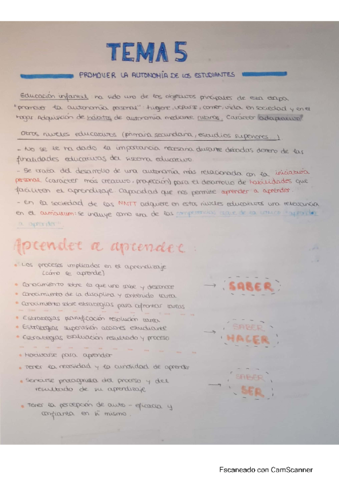 TEMA 5
PROMOVER LA AUTONOMÍA DE LOS ESTUDIANTES
Educación infantil ha sido uno de los objetivos principales de esta etapa
"promover la autonomía personal". Higiene, vestirse, comer, vida en sociedad y en el
hogar. Adquisición de hábitos de autonomía mediante rutinas. Carácter
Otros niveles educativos (primaria, secundaria, estudios superiores...)
- No se le ha dado la importancia necesaria durante décadas dentro de las
finalidades educativas del sistema educativo.
- Se trata del desarrollo de una autonomía más relacionada con la
personal (carácter más creativo, proyección) para el desarrollo de habilidades que
faciliten el aprendizaje. Capacidad que nos permite aprender a aprender.
- En la sociedad de las adquiere en estos niveles educativos una relevancia
en el currículum se incluye como una de las
a aprender
Aprender a aprender
• Los procesos implicados en el aprendizaje
(cómo se aprende)
• Conocimiento sobre lo que uno sabe y desconoce
• Conocimiento de la disciplina y contenido tarea
• Conocimiento sobre estrategias para afrontar tareas
SABER
• Estrategias planificación resolución tarea
• Estrategias supervisión acciones estudiante
• Estrategias evaluación resultado y proceso
SABER
HACER
• Motivarse para aprender
• Tener la necesidad y la curiosidad de aprender
• Sentirse protagonista del proceso y del
resultado de su aprendizaje
• Tener la percepción de auto-eficacia y
confianza en sí mismo
SABER
SER
Escaneado con CamScanner